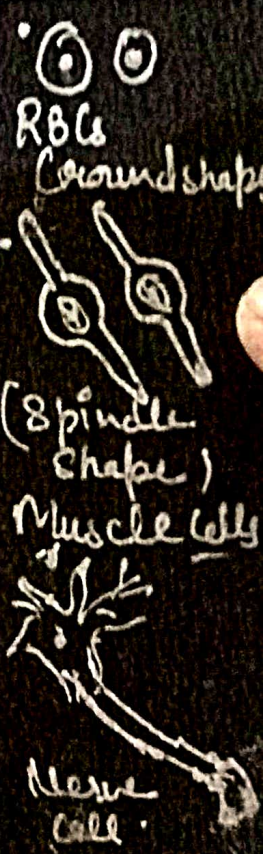 RBCs
(round shape
(Spindle
Shape)
Muscle Cells
Nerve
Cell.